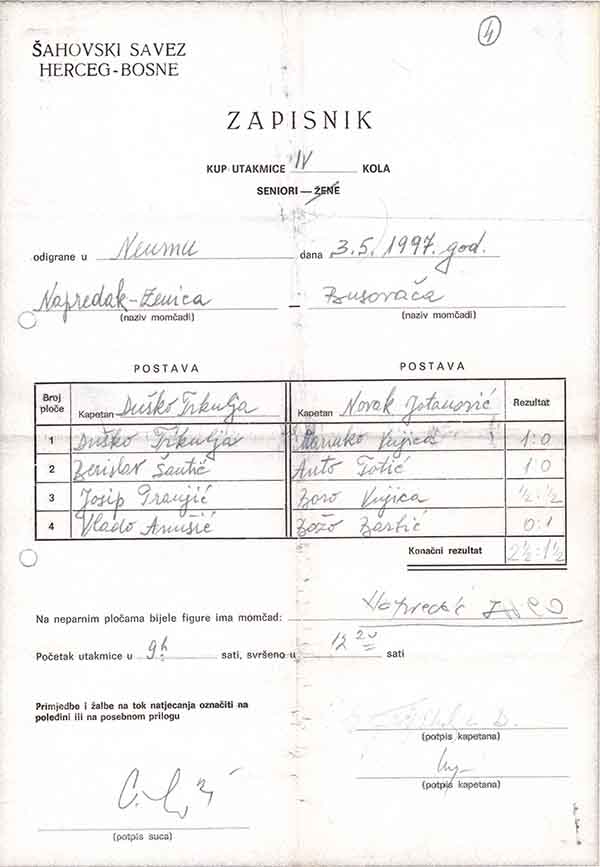 4
ŠAHOVSKI SAVEZ
HERCEG-BOSNE
ZAPISNIK
KUP UTAKMICE IV KOLA
SENIORI — ŽENE
odigrane u Neumu dana 3.5.1997. god.
Napredak-Zenica — Busovača
(naziv momčadi) (naziv momčadi)
POSTAVA POSTAVA
Broj ploče Kapetan Duško Trkulja Kapetan Novak Rezultat
1 Duško Trkulja Vujica 1:0
2 Berislav Šantić Anto Totić 1:0
3 Josip Boro Vujica ½:½
4 Vlado Božo 0:1
Konačni rezultat 2½:1½
Na neparnim pločama bijele figure ima momčad: Napredak
Početak utakmice u 9h sati, svršeno u 12 20 sati
Primjedbe i žalbe na tok natjecanja označiti na
poleđini ili na posebnom prilogu
(potpis kapetana)
(potpis kapetana)
(potpis suca)